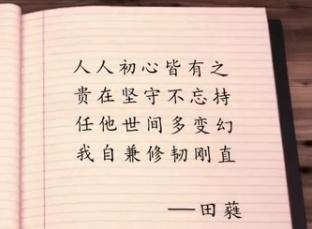 人人初心皆有之
贵在坚守不忘持
任他世间多变幻
我自兼修韧刚直
——田蕤